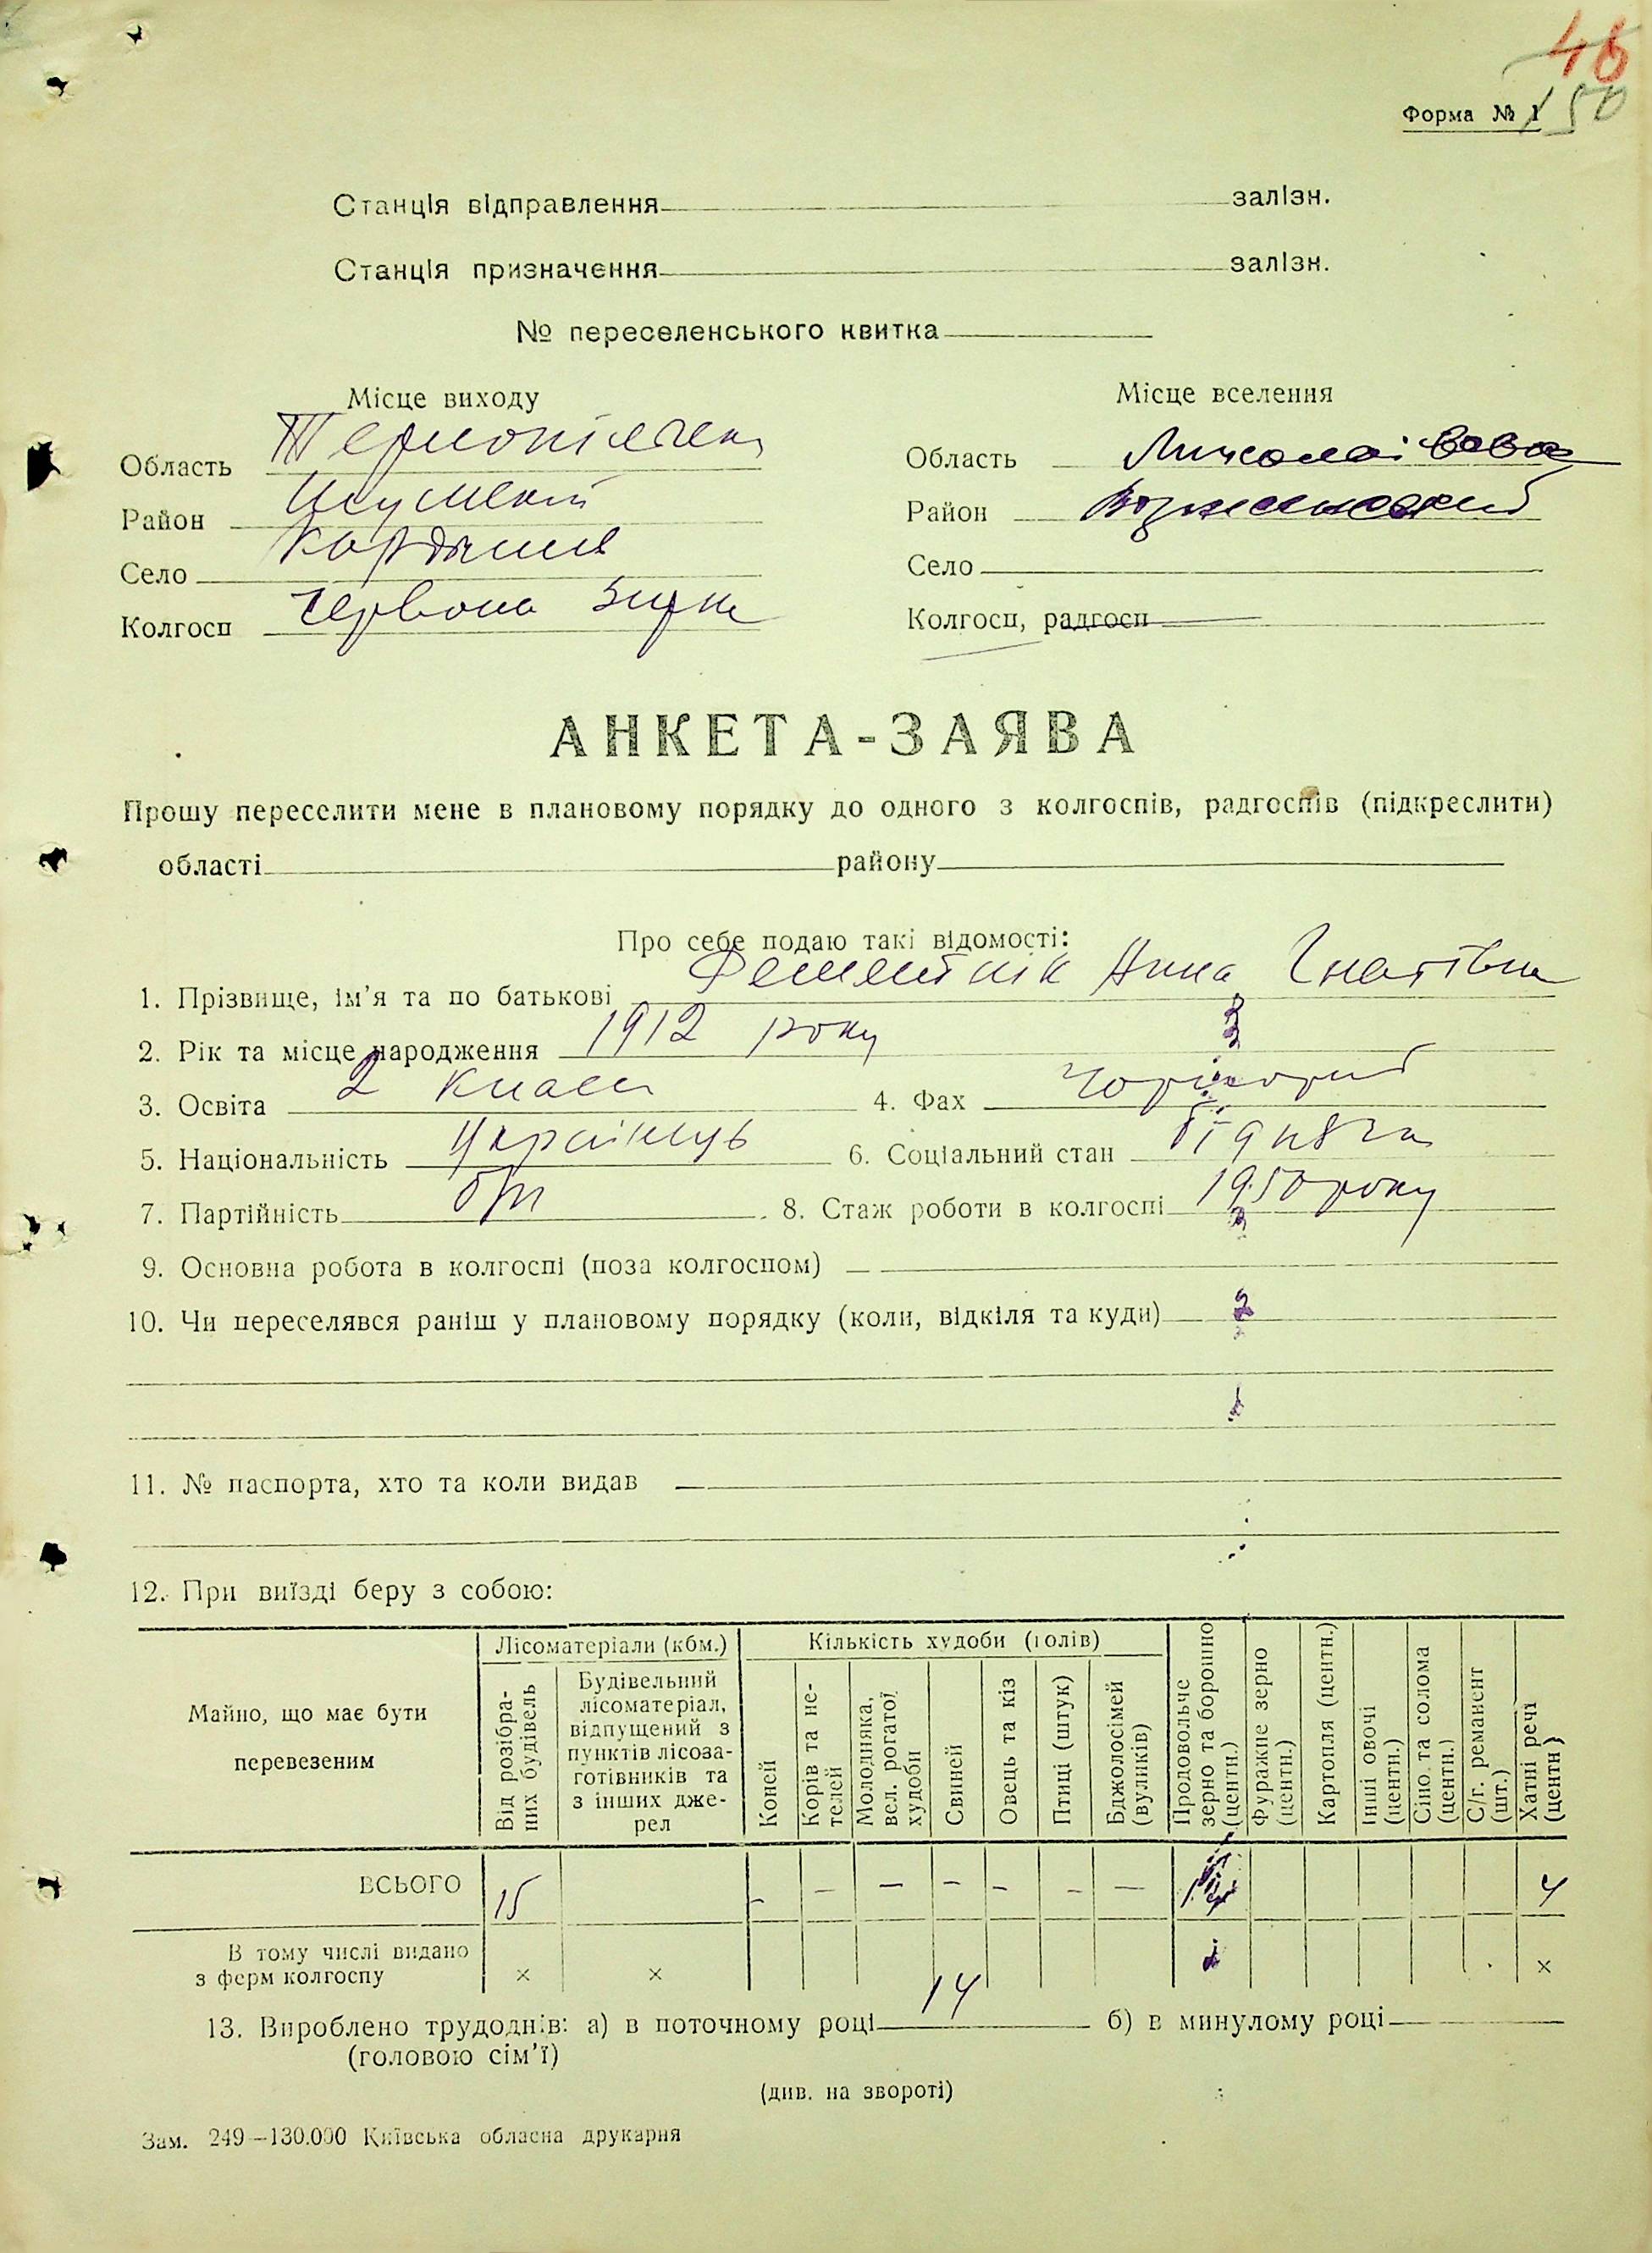 46
50
Форма № 1
Станція відправлення залізн.
Станція призначення залізн.
№ переселенського квитка
Місце виходу Місце вселення
Область Область Миколаївська
Район Шумский Район Вознесенский
Село Кордишів Село
Колгосп Червона Зирка Колгосп, радгосп
АНКЕТА-ЗАЯВА
Прошу переселити мене в плановому порядку до одного з колгоспів, радгоспів (підкреслити)
області району
Про себе подаю такі відомості:
1. Прізвище, ім'я та по батькові Анна Гнатівна
2. Рік та місце народження 1912 року
3. Освіта 2 класи 4. Фах
5. Національність українць 6. Соціальний стан біднячка
7. Партійність б/п 8. Стаж роботи в колгоспі 1950 року
9. Основна робота в колгоспі (поза колгоспом)
10. Чи переселявся раніш у плановому порядку (коли, відкіля та куди)
11. № паспорта, хто та коли видав
12. При виїзді беру з собою:
Майно, що має бути перевезеним
Лісоматеріали (кбм.)
Від розібраних будівель
Будівельний лісоматеріал, відпущений з пунктів лісозаготівників та з інших джерел
Кількість худоби (голів)
Коней
Корів та нетелей
Молодняка, вел. рогатої худоби
Свиней
Овець та кіз
Птиці (штук)
Бджолосімей (вуликів)
Продовольче зерно та борошно (центн.)
Фуражне зерно (центн.)
Картопля (центн.)
Інші овочі (центн.)
Сіно та солома (центн.)
С/г. реманент (шт.)
Хатні речі (центн)
ВСЬОГО 15 – – – – – – – 4
В тому числі видано
з ферм колгоспу × × ×
13. Вироблено трудоднів: а) в поточному році 14 б) в минулому році
(головою сім'ї)
(див. на звороті)
Зам. 249—130.000 Київська обласна друкарня